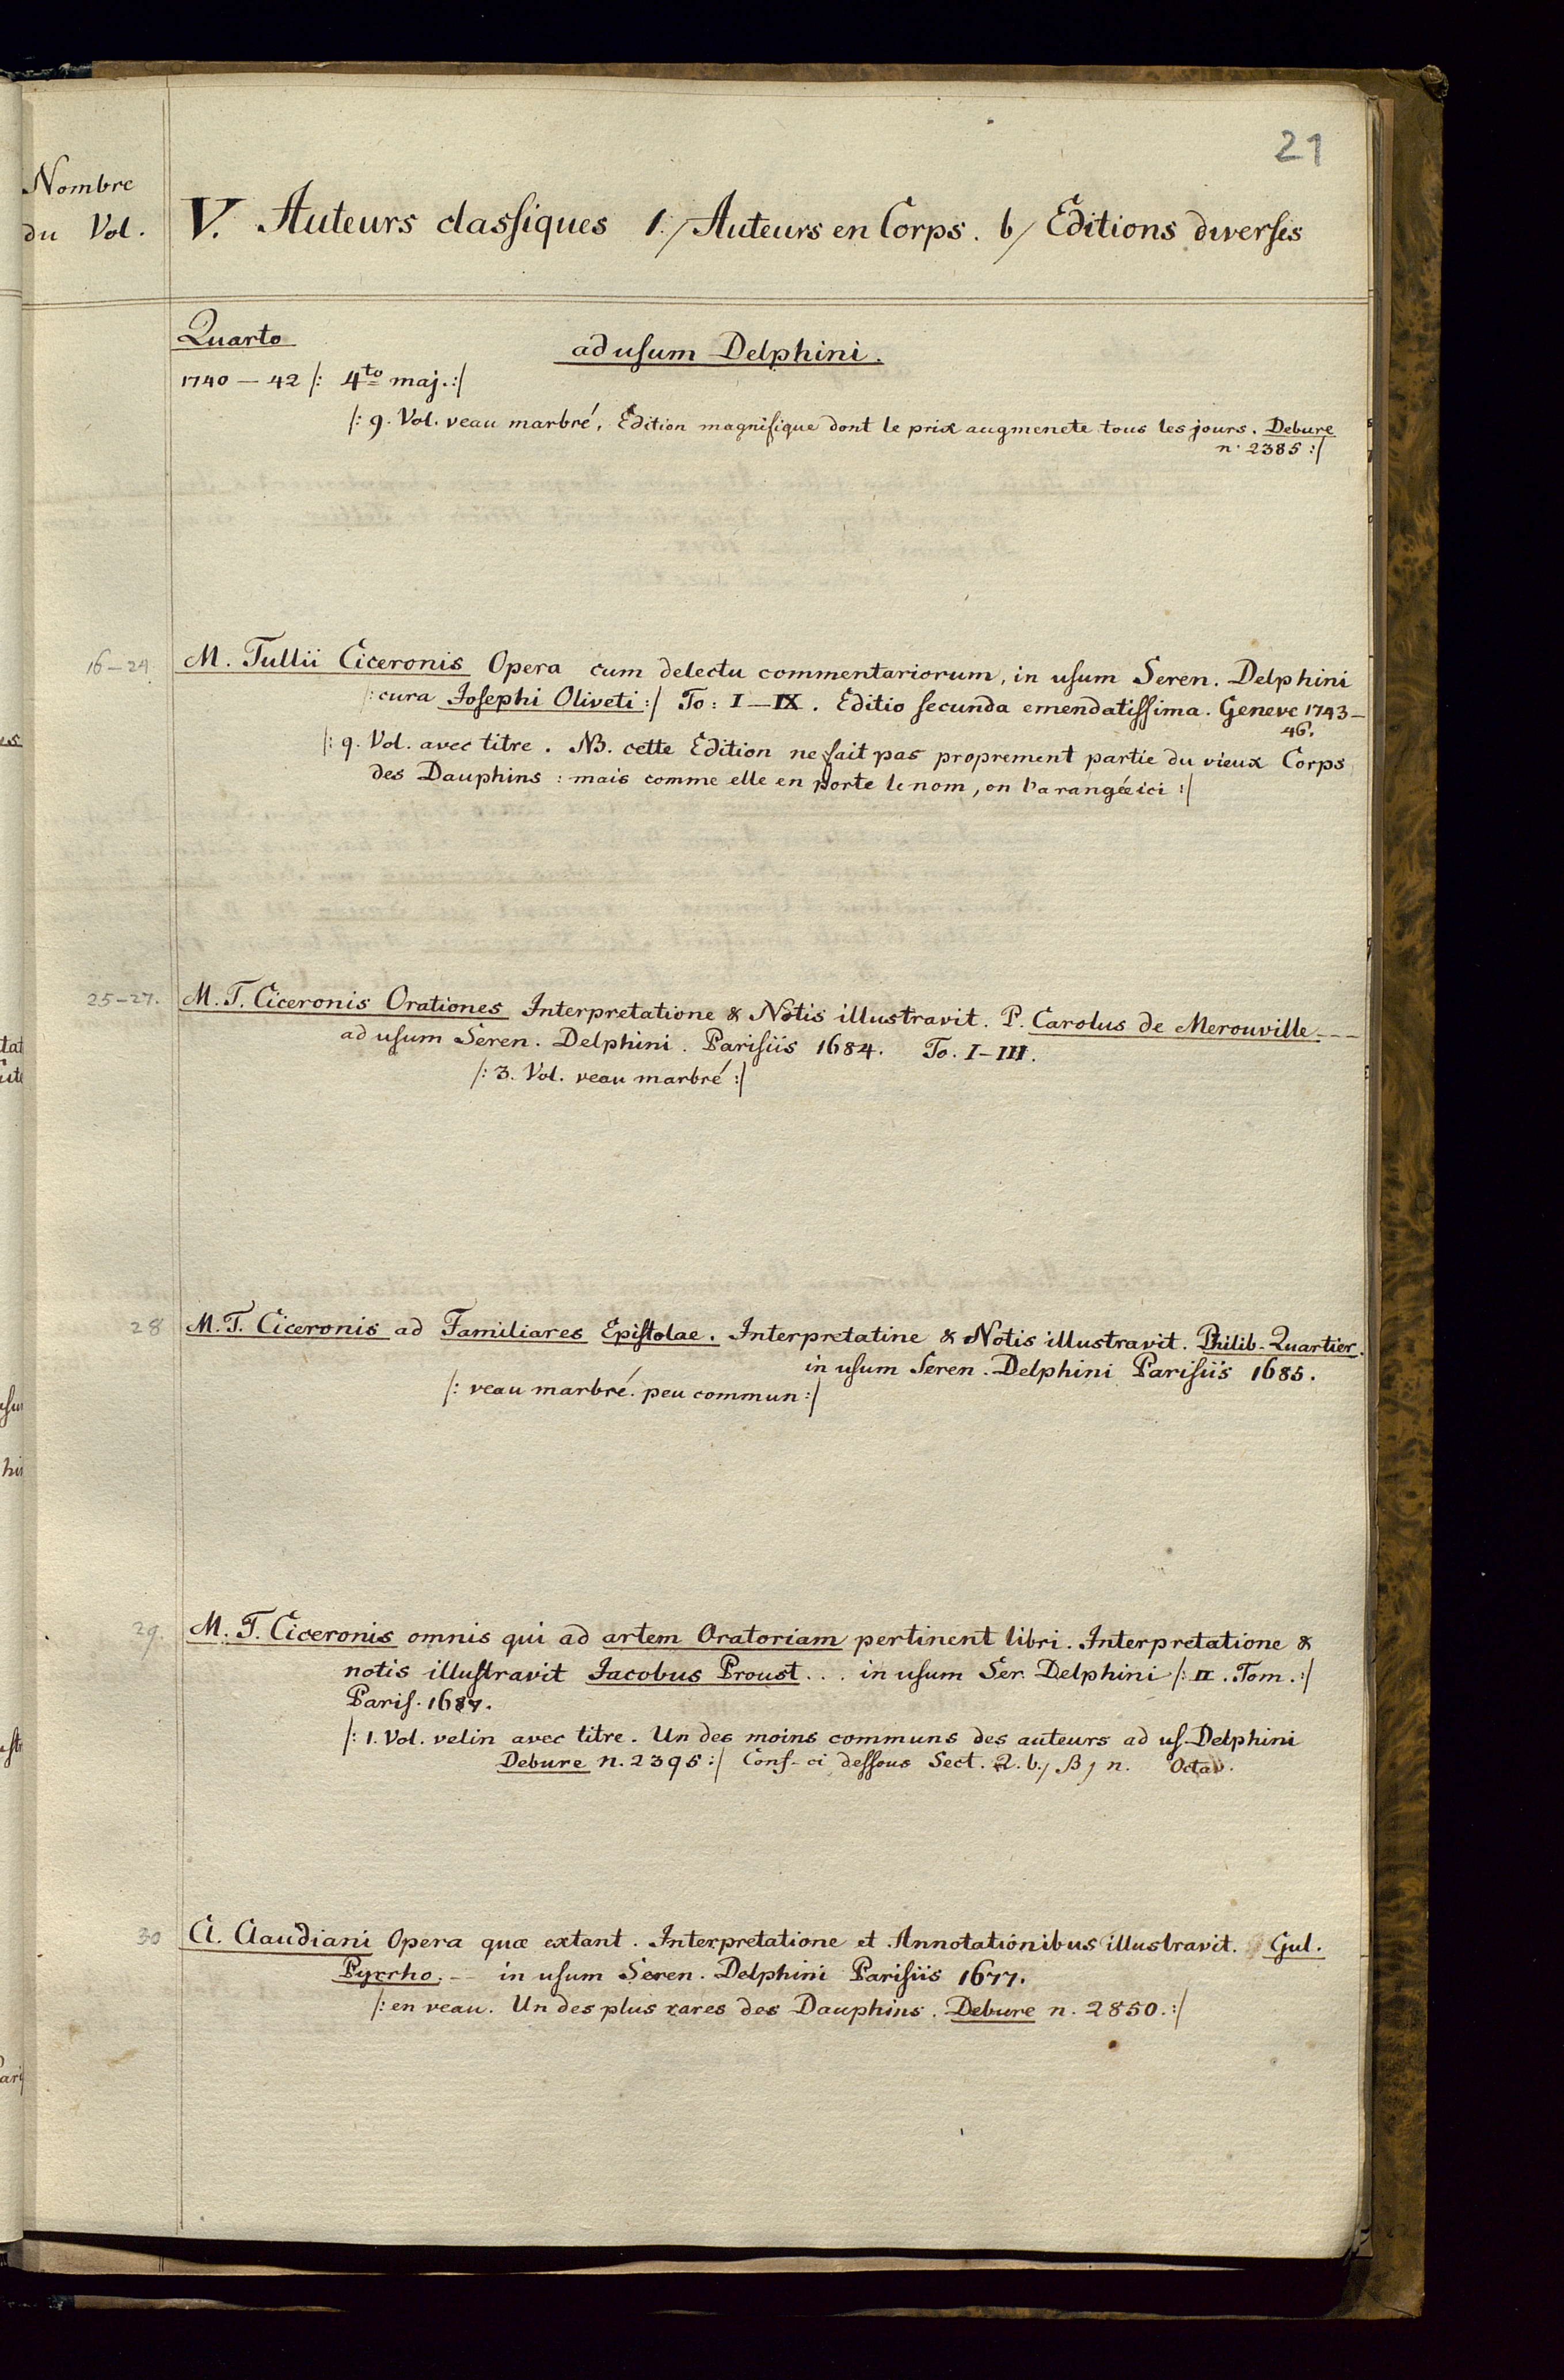 21
Nombre
du Vol.
V. Auteurs classiques 1./ Auteurs en Corps. b/ Editions diverses
Quarto
ad usum Delphini.
1740 — 42 /: 4to maj. :/
/: 9. Vol. veau marbré. Edition magnifique dont le prix augmenete tous les jours. Debure
n. 2385 :/
16–24.
M. Tullii Ciceronis Opera cum delectu commentariorum, in usum Seren. Delphini
/: cura Josephi Oliveti :/ To: I–IX. Editio secunda emendatissima. Geneve 1743–
46.
/: 9. Vol. avec titre. NB. cette Edition ne fait pas proprement partie du vieux Corps
des Dauphins : mais comme elle en porte le nom, on l'a rangée ici :/
25–27.
M. T. Ciceronis Orationes Interpretatione & Notis illustravit. P. Carolus de Merouville - - -
ad usum Seren. Delphini. Parisiis 1684. To. I–III.
/: 3. Vol. veau marbré :/
28
M. T. Ciceronis ad Familiares Epistolae. Interpretatine & Notis illustravit. Philib. Quartier.
in usum Seren. Delphini Parisiis 1685.
/: veau marbré. peu commun :/
29.
M. T. Ciceronis omnis qui ad artem Oratoriam pertinent libri. Interpretatione &
notis illustravit Jacobus Proust . . . in usum Ser. Delphini /: II. Tom. :/
Paris. 1687.
/: 1. Vol. velin avec titre. Un des moins communs des auteurs ad us. Delphini
Debure n. 2395 :/ Conf. ci dessous Sect. 2. b./ β / n. Octav.
30
Cl. Claudiani Opera quæ extant. Interpretatione et Annotationibus illustravit. Gul.
Pyrrho. – in usum Seren. Delphini Parisiis 1677.
/: en veau. Un des plus rares des Dauphins. Debure n. 2850. :/